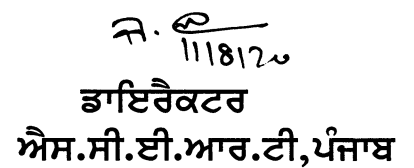 11/8/20
ਡਾਇਰੈਕਟਰ
ਐਸ.ਸੀ.ਈ.ਆਰ.ਟੀ,ਪੰਜਾਬ